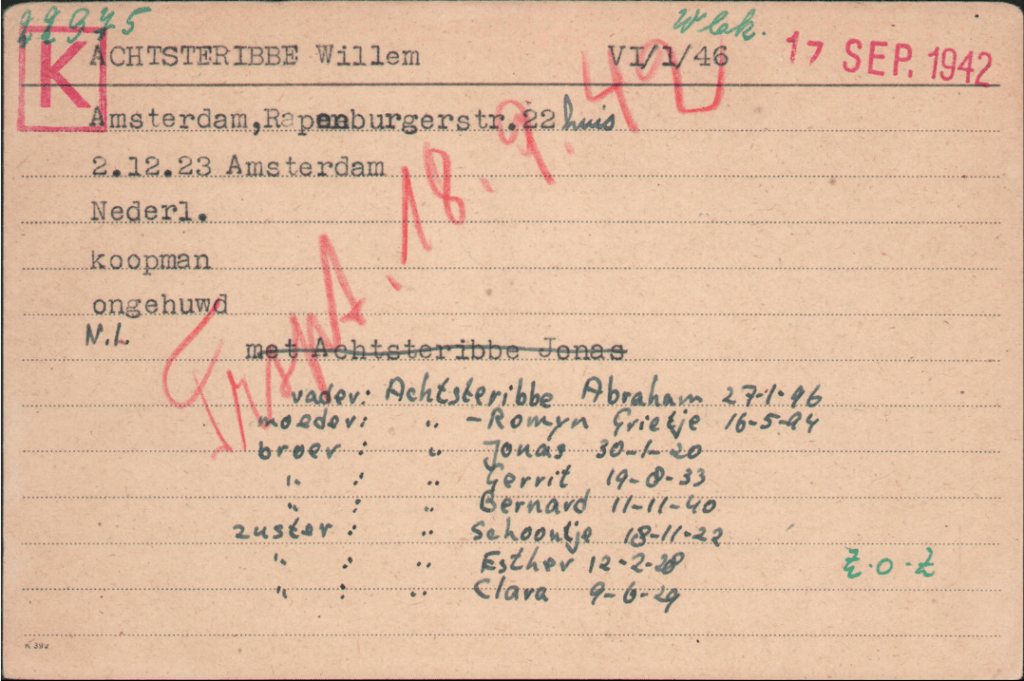 22975
Wlek.
K ACHTSTERIBBE Willem VI/1/46 17 SEP. 1942
Amsterdam,Rapenburgerstr.22 huis
2.12.23 Amsterdam
Nederl.
koopman
ongehuwd
N.L
Trspt. 18.9.42
met Achtsteribbe Jonas
vader: Achtsteribbe Abraham 27-1-96
moeder: " -Romyn Grietje 16-5-94
broer : " Jonas 30-1-20
" : " Gerrit 19-8-33
" : " Bernard 11-11-40
zuster : " Schoontje 18-11-22
" : " Esther 12-2-28
" : " Clara 9-6-29
Z.O.Z
K 392